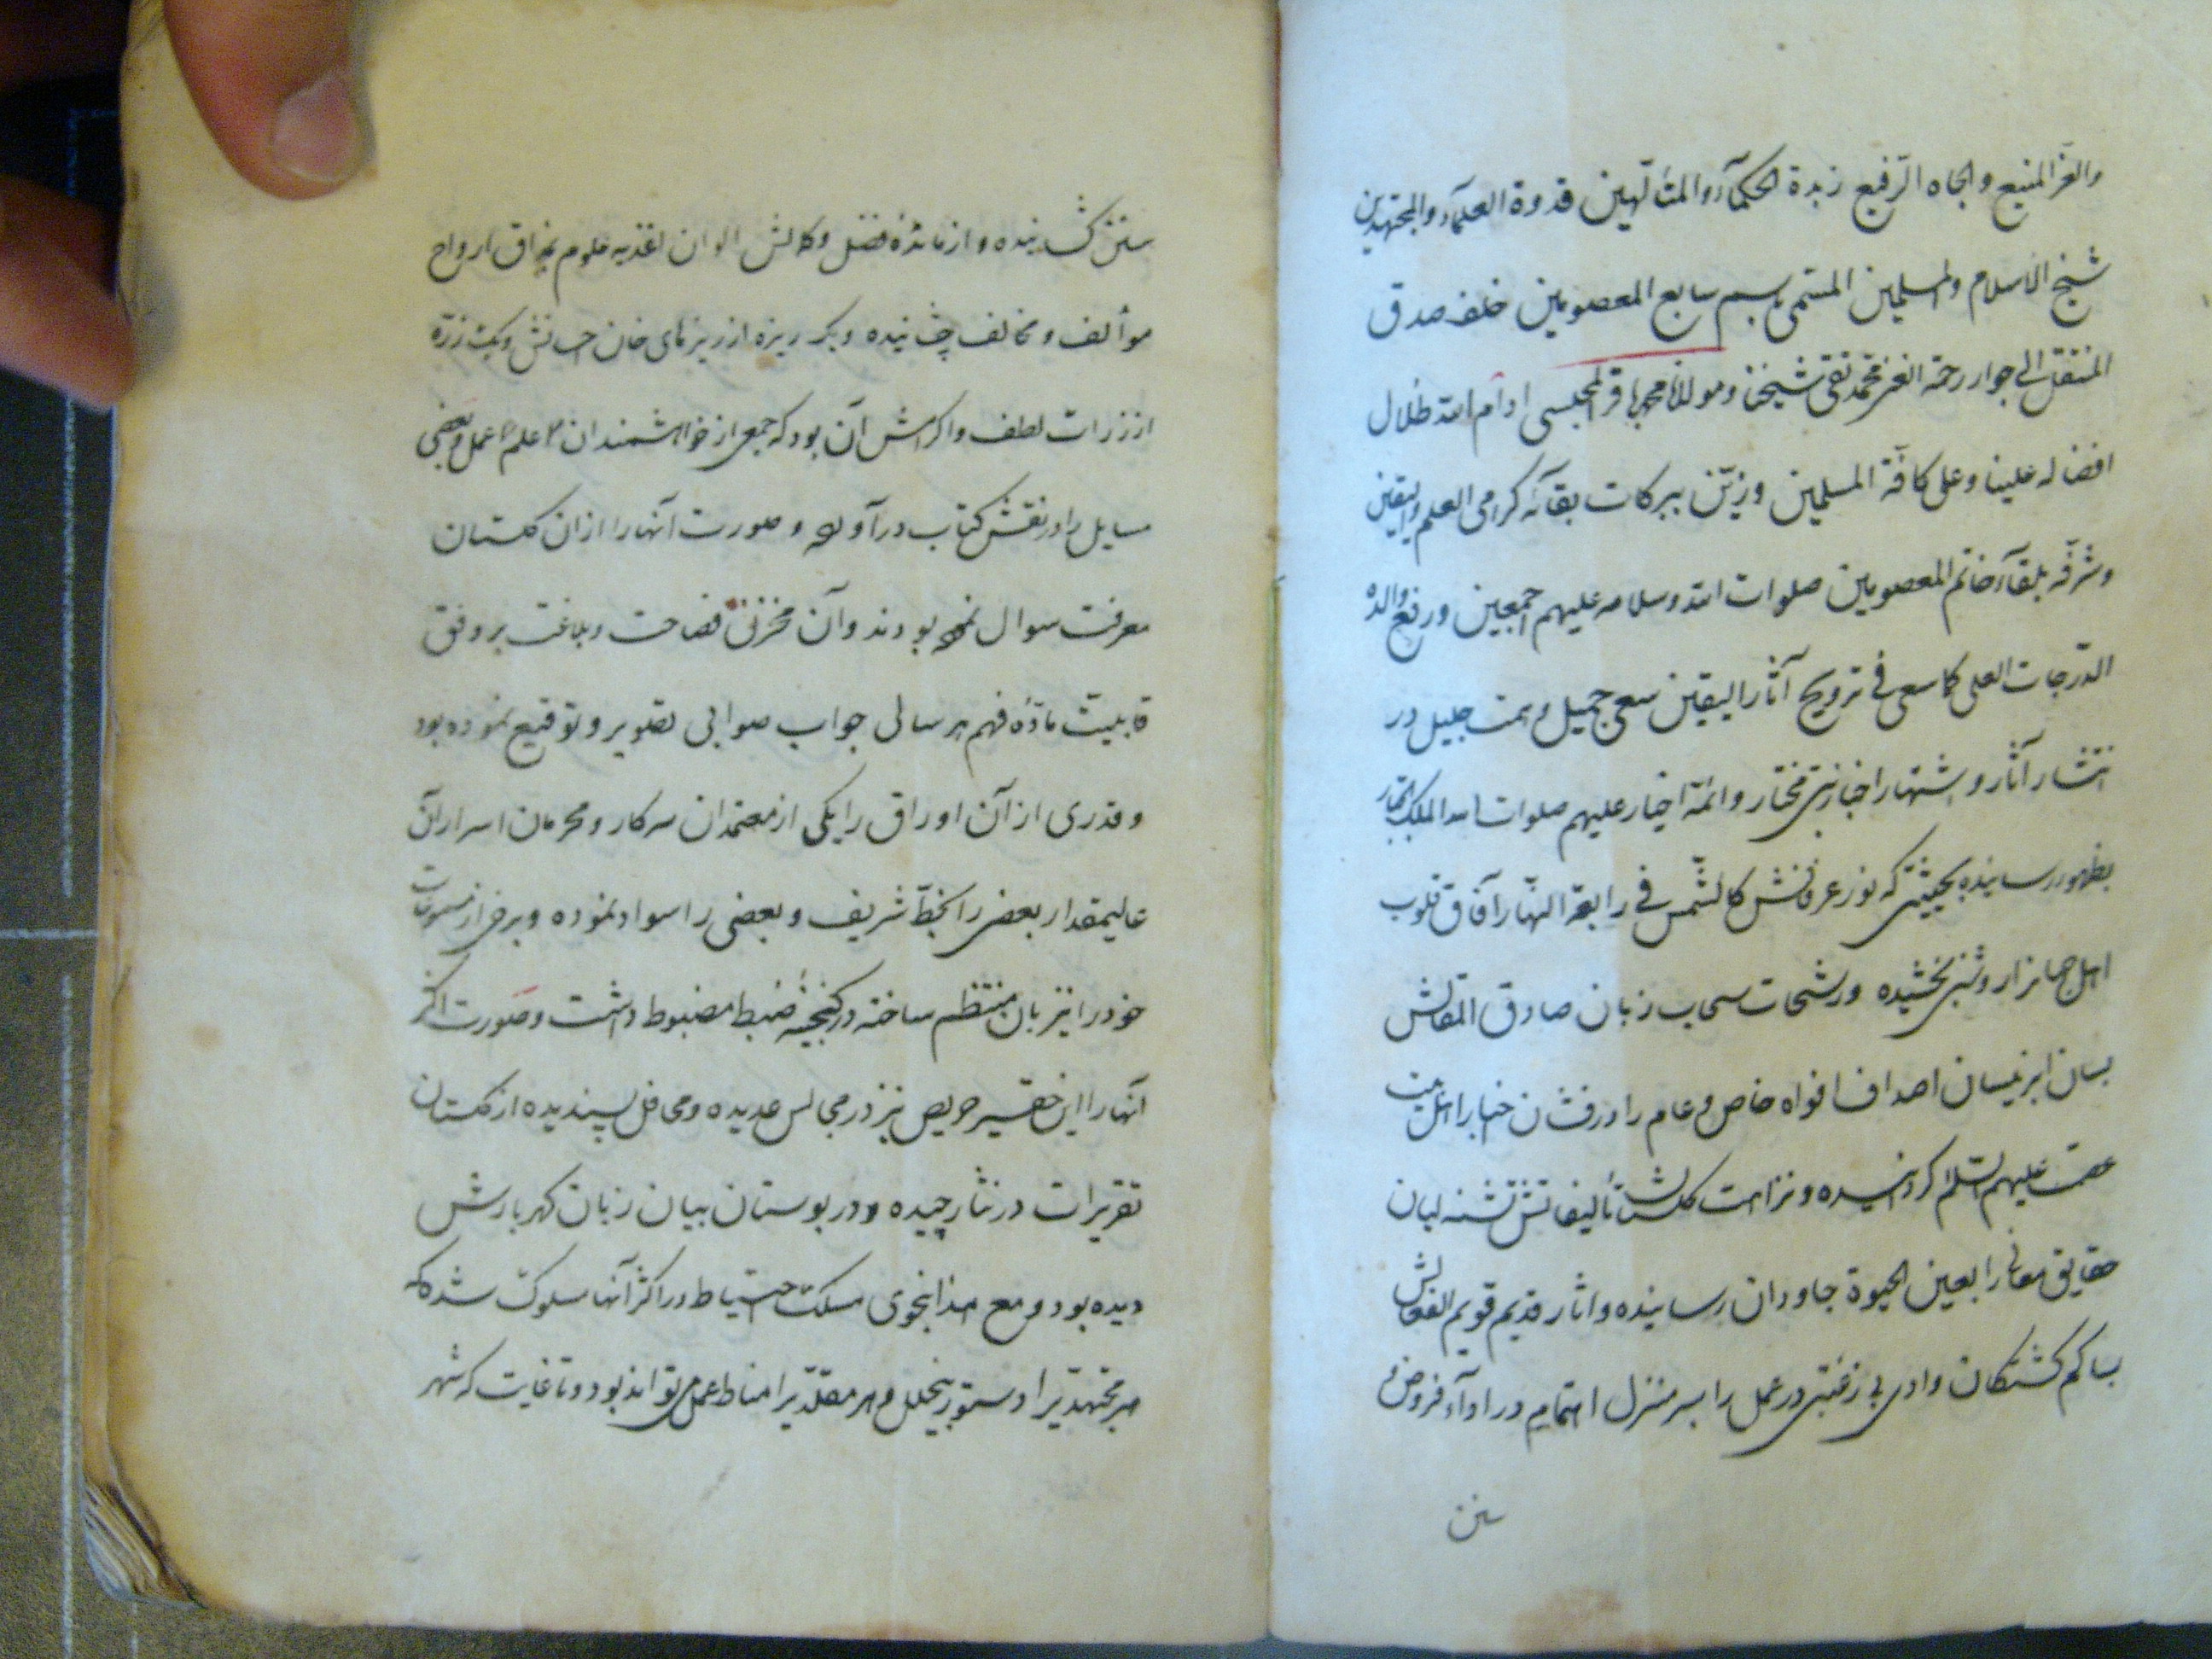 والعز المنیع والجاه الرفیع زبدة الحکمآء والمتألهین قدوة العلمآء والمجتهدین
شیخ الاسلام والمسلمین المسمی باسم سابع المعصومین خلف صدق
المنتقل الی جوار رحمة الغنی محمد تقی شیخنا ومولانا محمد باقر المجلسی ادام الله ظلال
افضاله علینا وعلی کافة المسلمین وزین ببرکات بقآئه کراسی العلم والیقین
وشرفه بلقآء خاتم المعصومین صلوات الله وسلامه علیهم اجمعین ورفع والده
الدرجات العلی کما سعی فی ترویج آثار الیقین سعی جمیل و همت جلیل در
انتشار آثار و اشتهار اخبار نبی مختار و ائمة اخیار علیهم صلوات الله الملک الجبار
بظهور رسانیده بحیثیتی که نور عرفانش کالشمس فی رابعة النهار آفاق قلوب
اهل جهانرا روشنی بخشیده و رشحات سحاب زبان صادق المقالش
بسان ابر نیسان اصداف افواه خاص و عام را درفشان اخبار اهل بیت
عصمت علیهم السلام گردانیده و نزاهت گلستان تألیفاتش تشنه لبان
حقایق معانی را بعین الحیوة جاودان رسانیده و اثار قدیم قویم الفعالش
بسا گم گشتگان وادی بی رغبتی در عمل را بسر منزل اهتمام در ادآء فروض و
سنن
سنن کشانیده و از مائده فضل و کمالش الوان اغذیه علوم بمذاق ارواح
موألف و مخالف چشانیده و یک ریزه از ریزهای خان احسانش و یک ذره
از ذرات لطف و اکرامش آن بود که جمعی از خواهشمندان علم و عمل و بعضی
مسایل را در نقش کتاب در آورده و صورت آنها را از ان گلستان
معرفت سوال نموده بودند و آن مخزن فصاحت و بلاغت بر وفق
قابلیت مادّه فهم هر سائلی جواب صوابی تصویر و توقیع نموده بود
و قدری از آن اوراق را یکی از معتمدان سرکار و محرمان اسرار آن
عالیمقدار بعضی را بخط شریف و بعضی را سواد نموده و برخی از مسموعات
خود را نیز بان منتظم ساخته در گنجینهٔ ضبط مضبوط داشت و صورت اکثر
آنها را این حقیر حریص نیز در مجالس عدیده و محافل پسندیده از گلستان
تقریرات در نثار چیده و در بوستان بیان زبان گهر بارش
دیده بود و مع هذا بنحوی مسلک احتیاط در اکثر آنها سلوک شد که
هر مجتهدیرا دستور بیخلل و هر مقلدیرا مناط عمل تواند بود و تا غایت که شهر